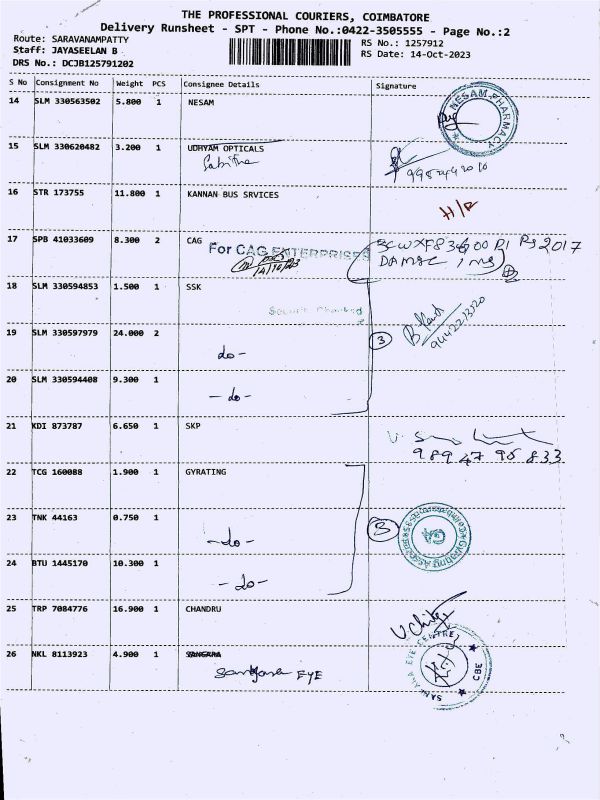 THE PROFESSIONAL COURIERS, COIMBATORE
Delivery Runsheet - SPT - Phone No.:0422-3505555 - Page No.:2
Route: SARAVANAMPATTY
Staff: JAYASEELAN B
DRS No.: DCJB125791202
RS No.: 1257912
RS Date: 14-Oct-2023
S No Consignment No Weight PCS Consignee Details Signature
14 SLM 330563502 5.800 1 NESAM
NESAM PHARMACY
15 SLM 330620482 3.200 1 UDHYAM OPTICALS
Sabitha
16 STR 173755 11.800 1 KANNAN BUS SRVICES
17 SPB 41033609 8.300 2 CAG
For CAG ENTERPRISES
18 SLM 330594853 1.500 1 SSK
19 SLM 330597979 24.000 2
-do-
3
20 SLM 330594408 9.300 1
-do-
21 KDI 873787 6.650 1 SKP
22 TCG 160088 1.900 1 GYRATING
23 TNK 44163 0.750 1
-do-
3
24 BTU 1445170 10.300 1
-do-
25 TRP 7084776 16.900 1 CHANDRU
26 NKL 8113923 4.900 1 SANKARA
EYE
SANKARA EYE CENTRE
CBE